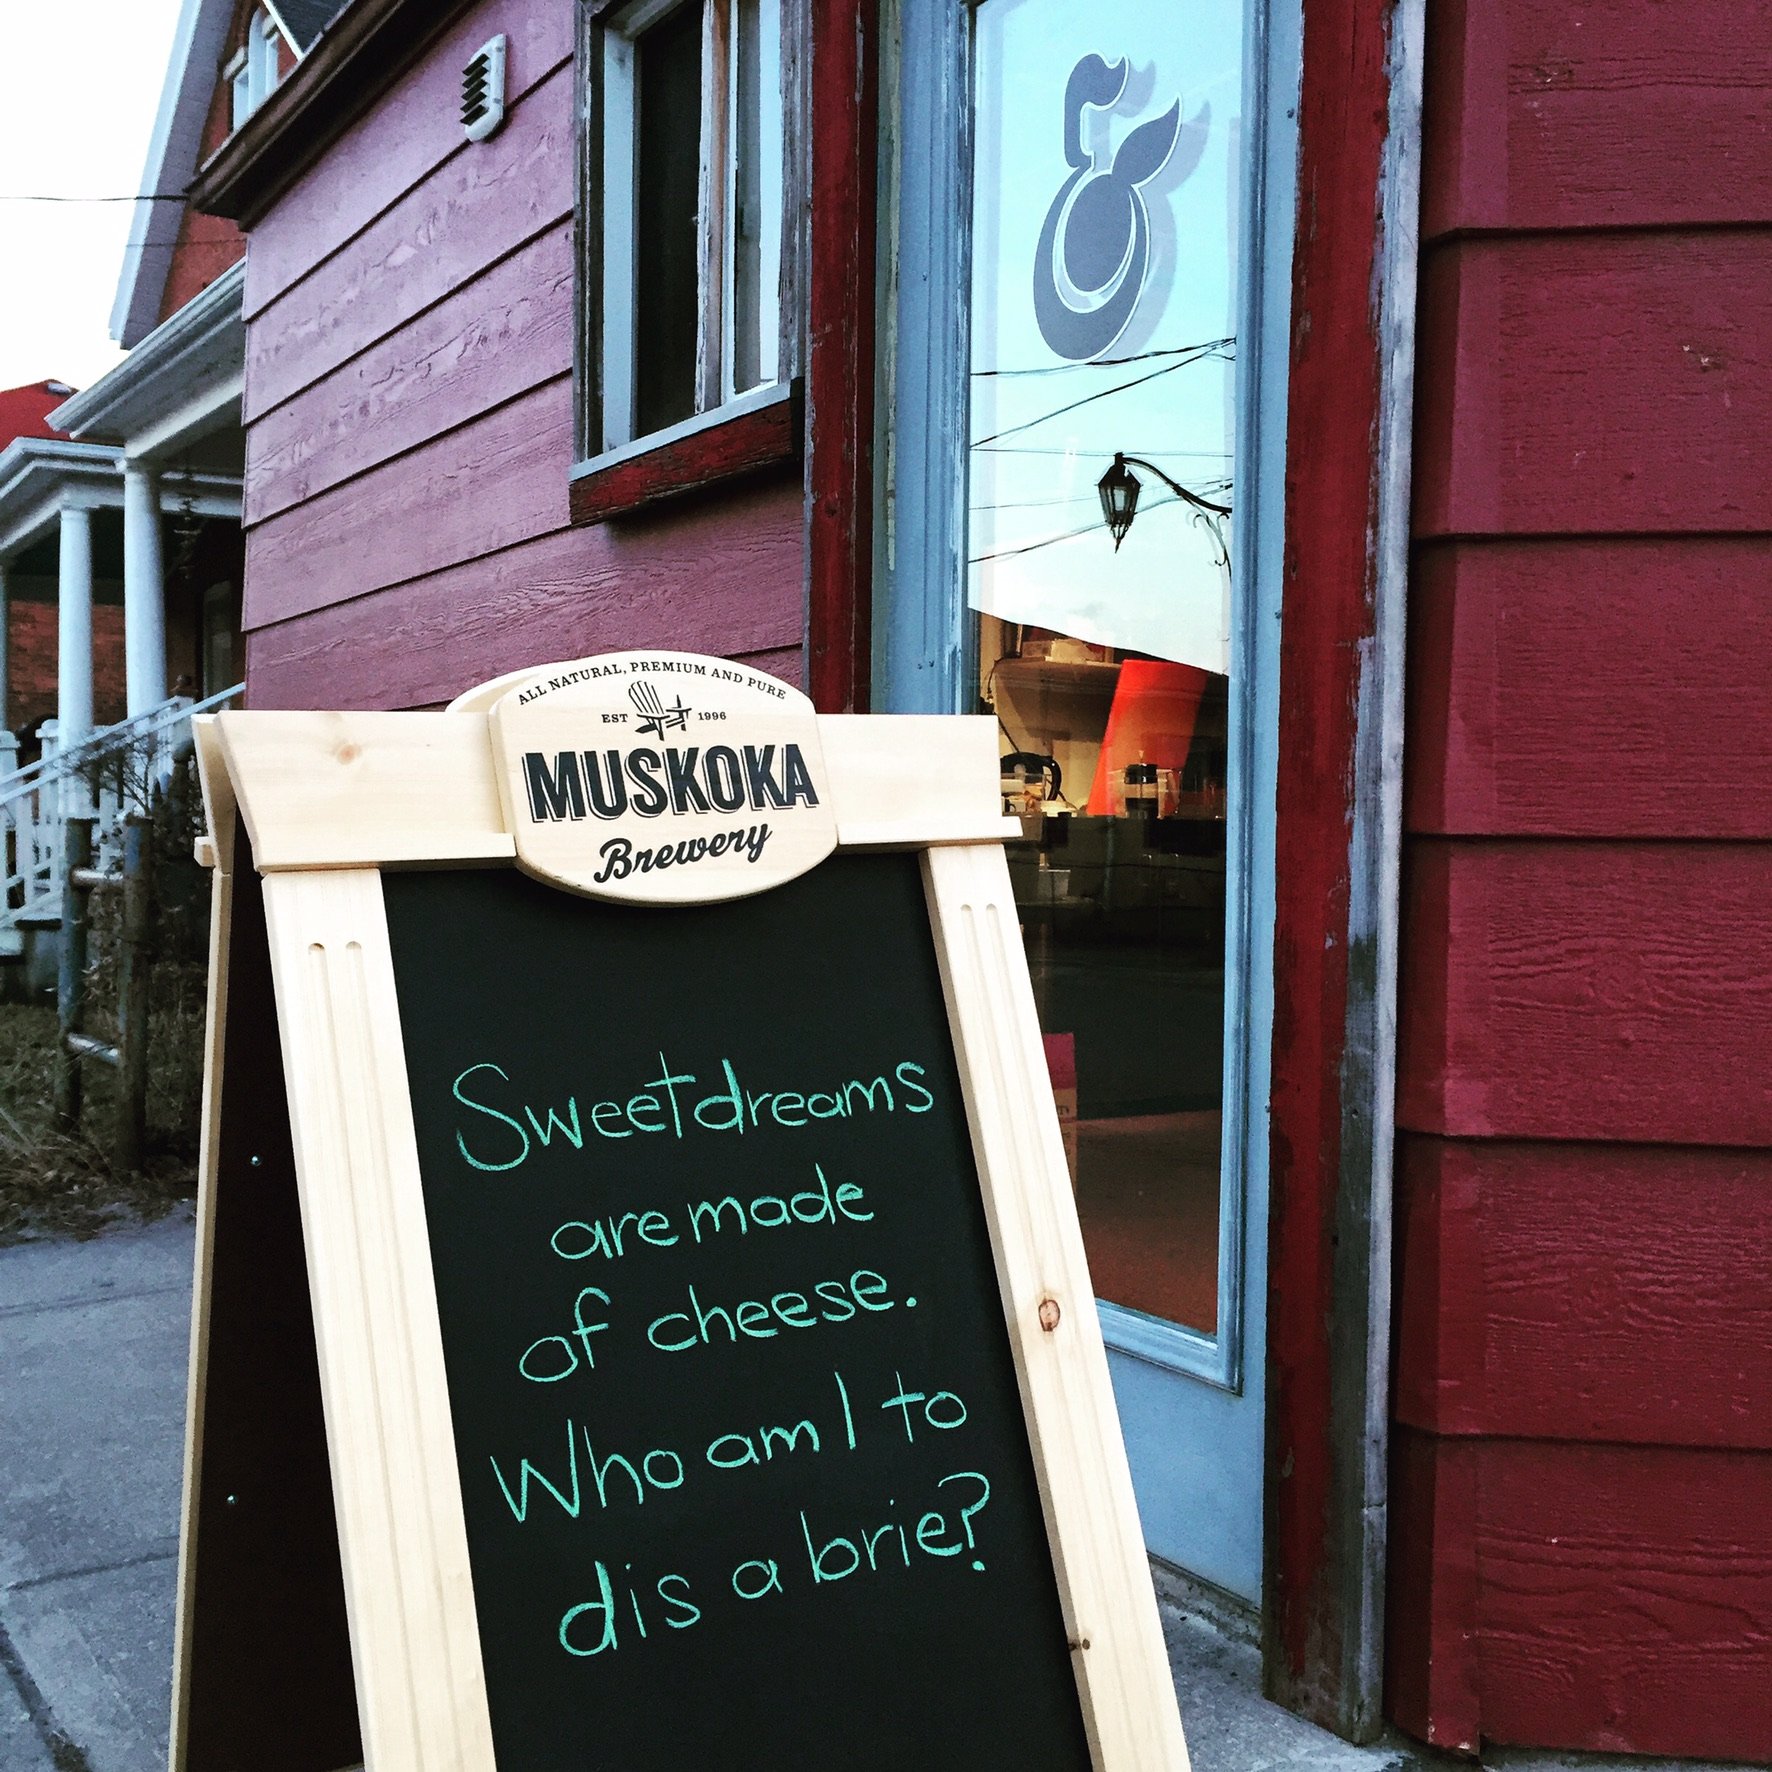 ALL NATURAL, PREMIUM AND PURE
EST 1996
MUSKOKA
Brewery
Sweet dreams
are made
of cheese.
Who am I to
dis a brie?